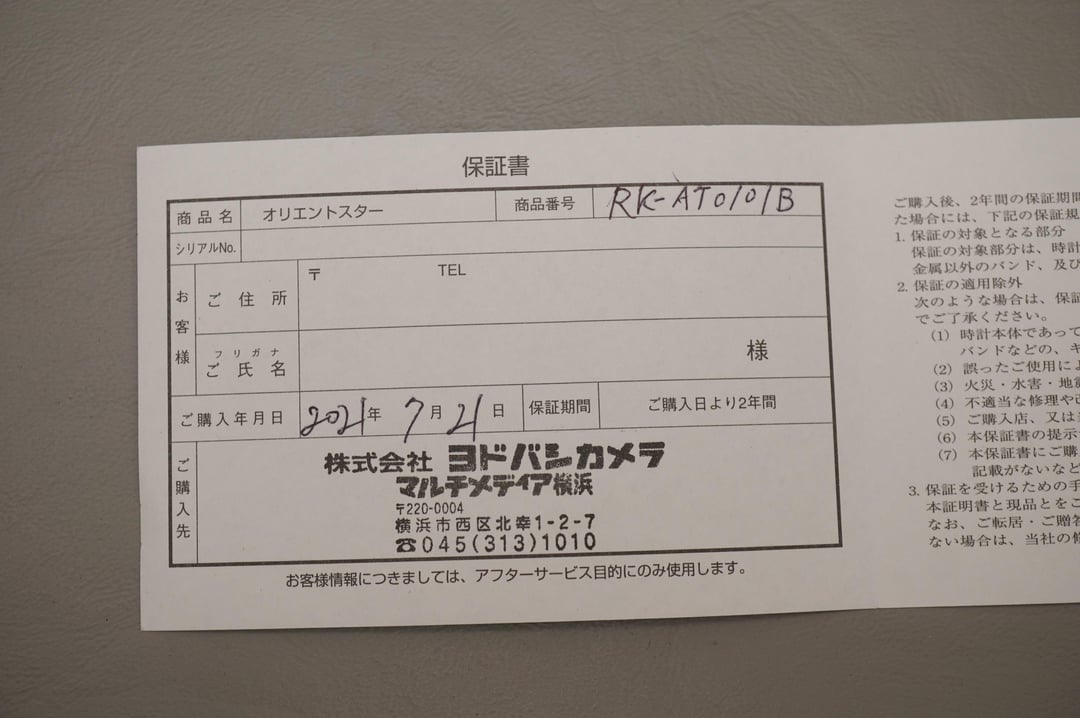 保証書
商品名 オリエントスター 商品番号 RK-AT0101B
シリアルNo.
お客様
ご住所 〒 TEL
フリガナ
ご氏名 様
ご購入年月日 2021年 7月 21日 保証期間 ご購入日より2年間
ご購入先
株式会社 ヨドバシカメラ
マルチメディア横浜
〒220-0004
横浜市西区北幸1-2-7
☎045(313)1010
お客様情報につきましては、アフターサービス目的にのみ使用します。
ご購入後、2年間の保証期間
た場合には、下記の保証規
1. 保証の対象となる部分
保証の対象部分は、時計
金属以外のバンド、及び
2. 保証の適用除外
次のような場合は、保証
でご了承ください。
(1) 時計本体であって
バンドなどの、キ
(2) 誤ったご使用によ
(3) 火災・水害・地震
(4) 不適当な修理や改
(5) ご購入店、又は
(6) 本保証書の提示
(7) 本保証書にご購
記載がないなど
3. 保証を受けるための手
本証明書と現品とをご
なお、ご転居・ご贈答
ない場合は、当社の修